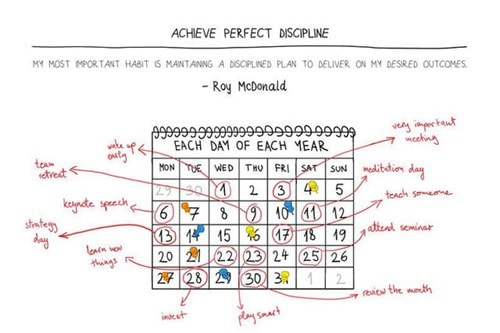 ACHIEVE PERFECT DISCIPLINE
MY MOST IMPORTANT HABIT IS MAINTAINING A DISCIPLINED PLAN TO DELIVER ON MY DESIRED OUTCOMES.
- Roy McDonald
very important
meeting
wake up
early
EACH DAY OF EACH YEAR
team
retreat
MON TUE WED THU FRI SAT SUN
meditation day
29 30 1 2 3 4 5
teach someone
keynote speech
6 7 8 9 10 11 12
strategy
day
13 14 15 16 17 18 19
attend seminar
learn new
things
20 21 22 23 24 25 26
27 28 29 30 31 1 2
invest
play smart
review the month